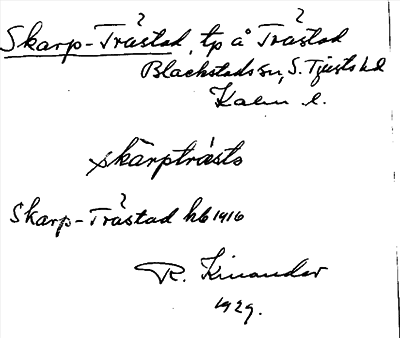 ?        ?
Skarp-Tråstad, tp å Tråstad
Blackstads sn, S. Tjusts hd
Kalm. l.
skärptråsto
?
Skarp-Tråstad hb 1916
R. Kinander
1929.